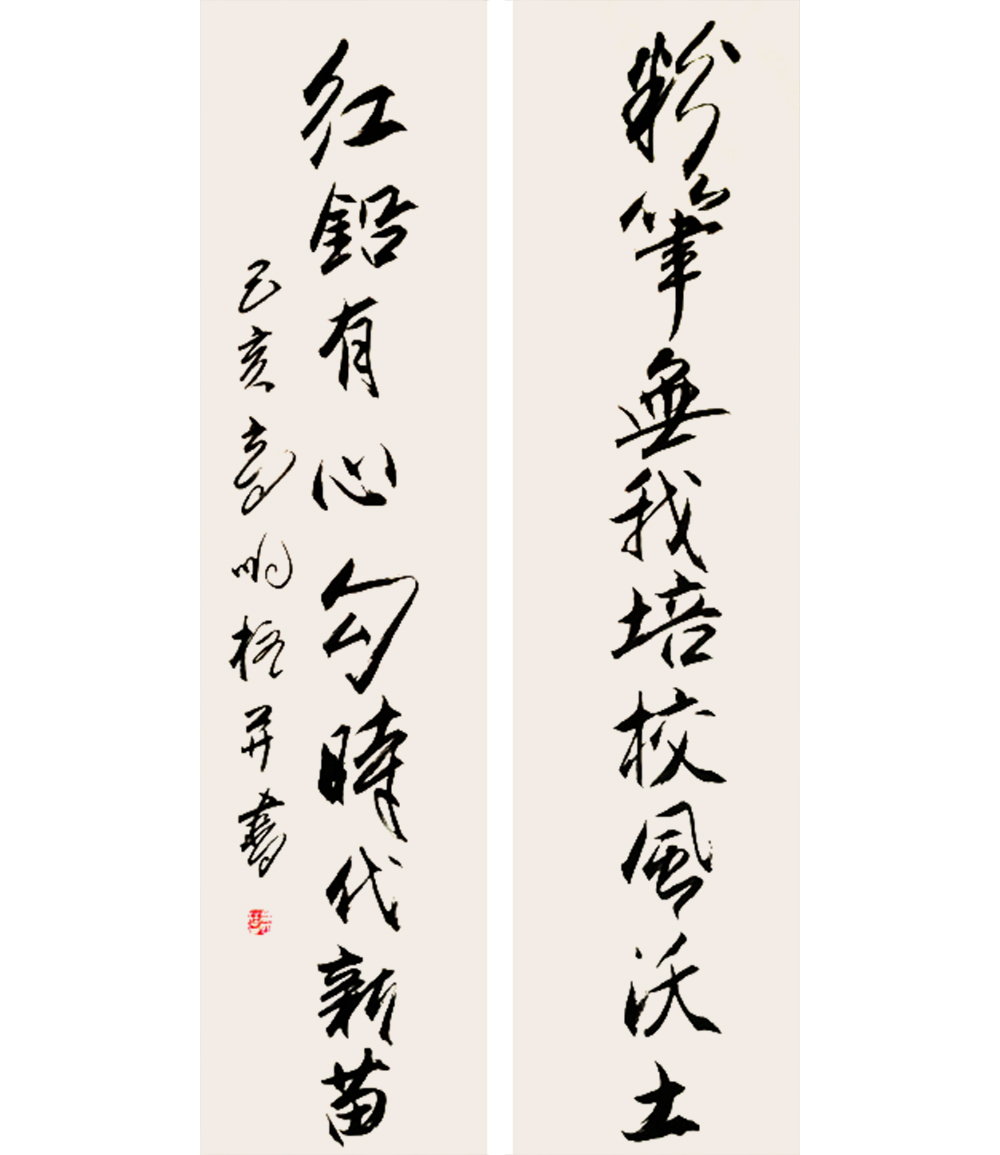 粉筆無我培校風沃土
紅鉛有心勾時代新苗
己亥高明格并書